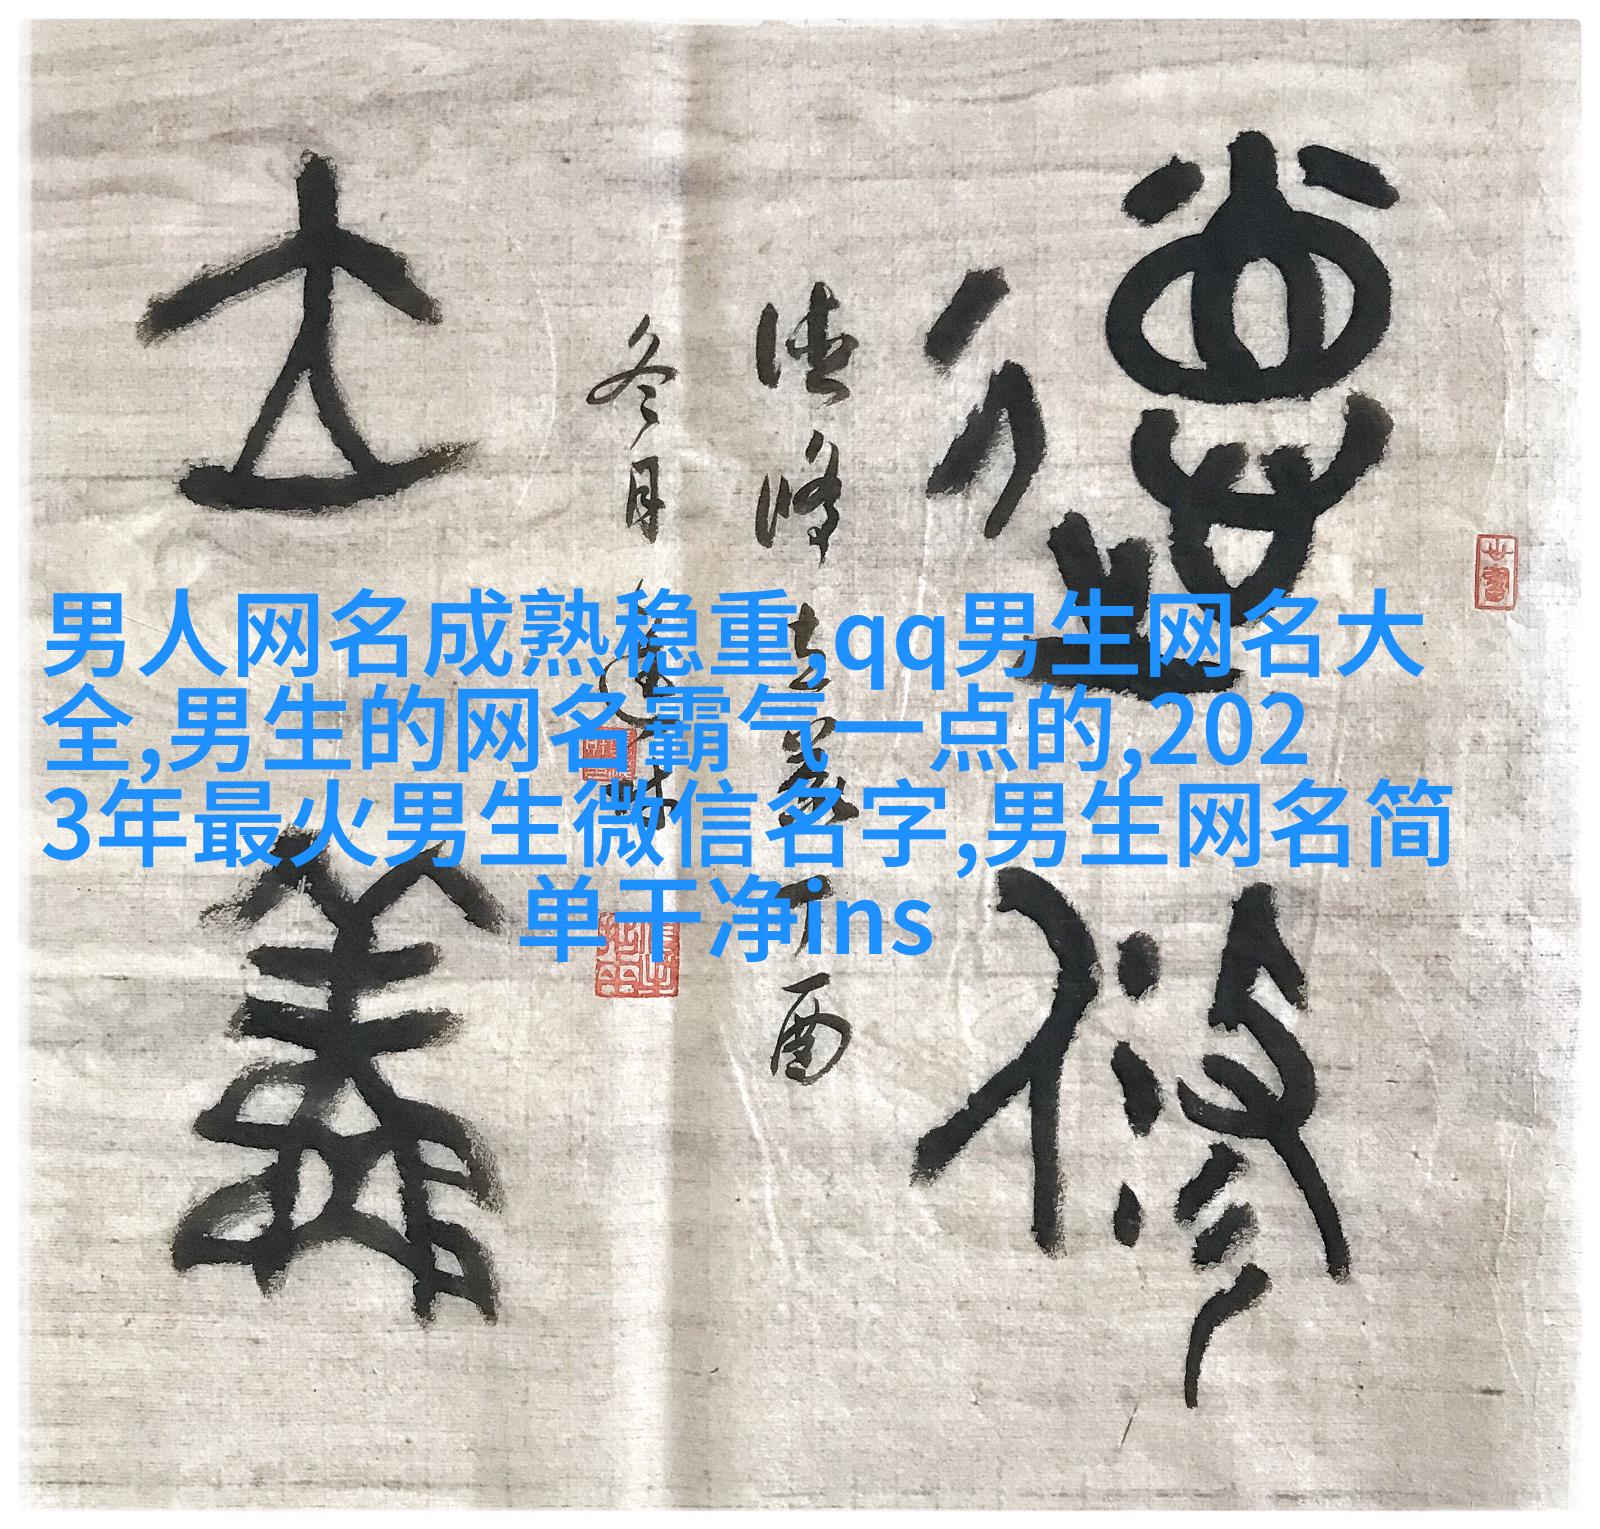 男人网名成熟稳重,qq男生网名大
全,男生的网名霸气一点的,202
3年最火男生微信名字,男生网名简
单干净ins
德
修
立
義
德修立義丁酉
冬月